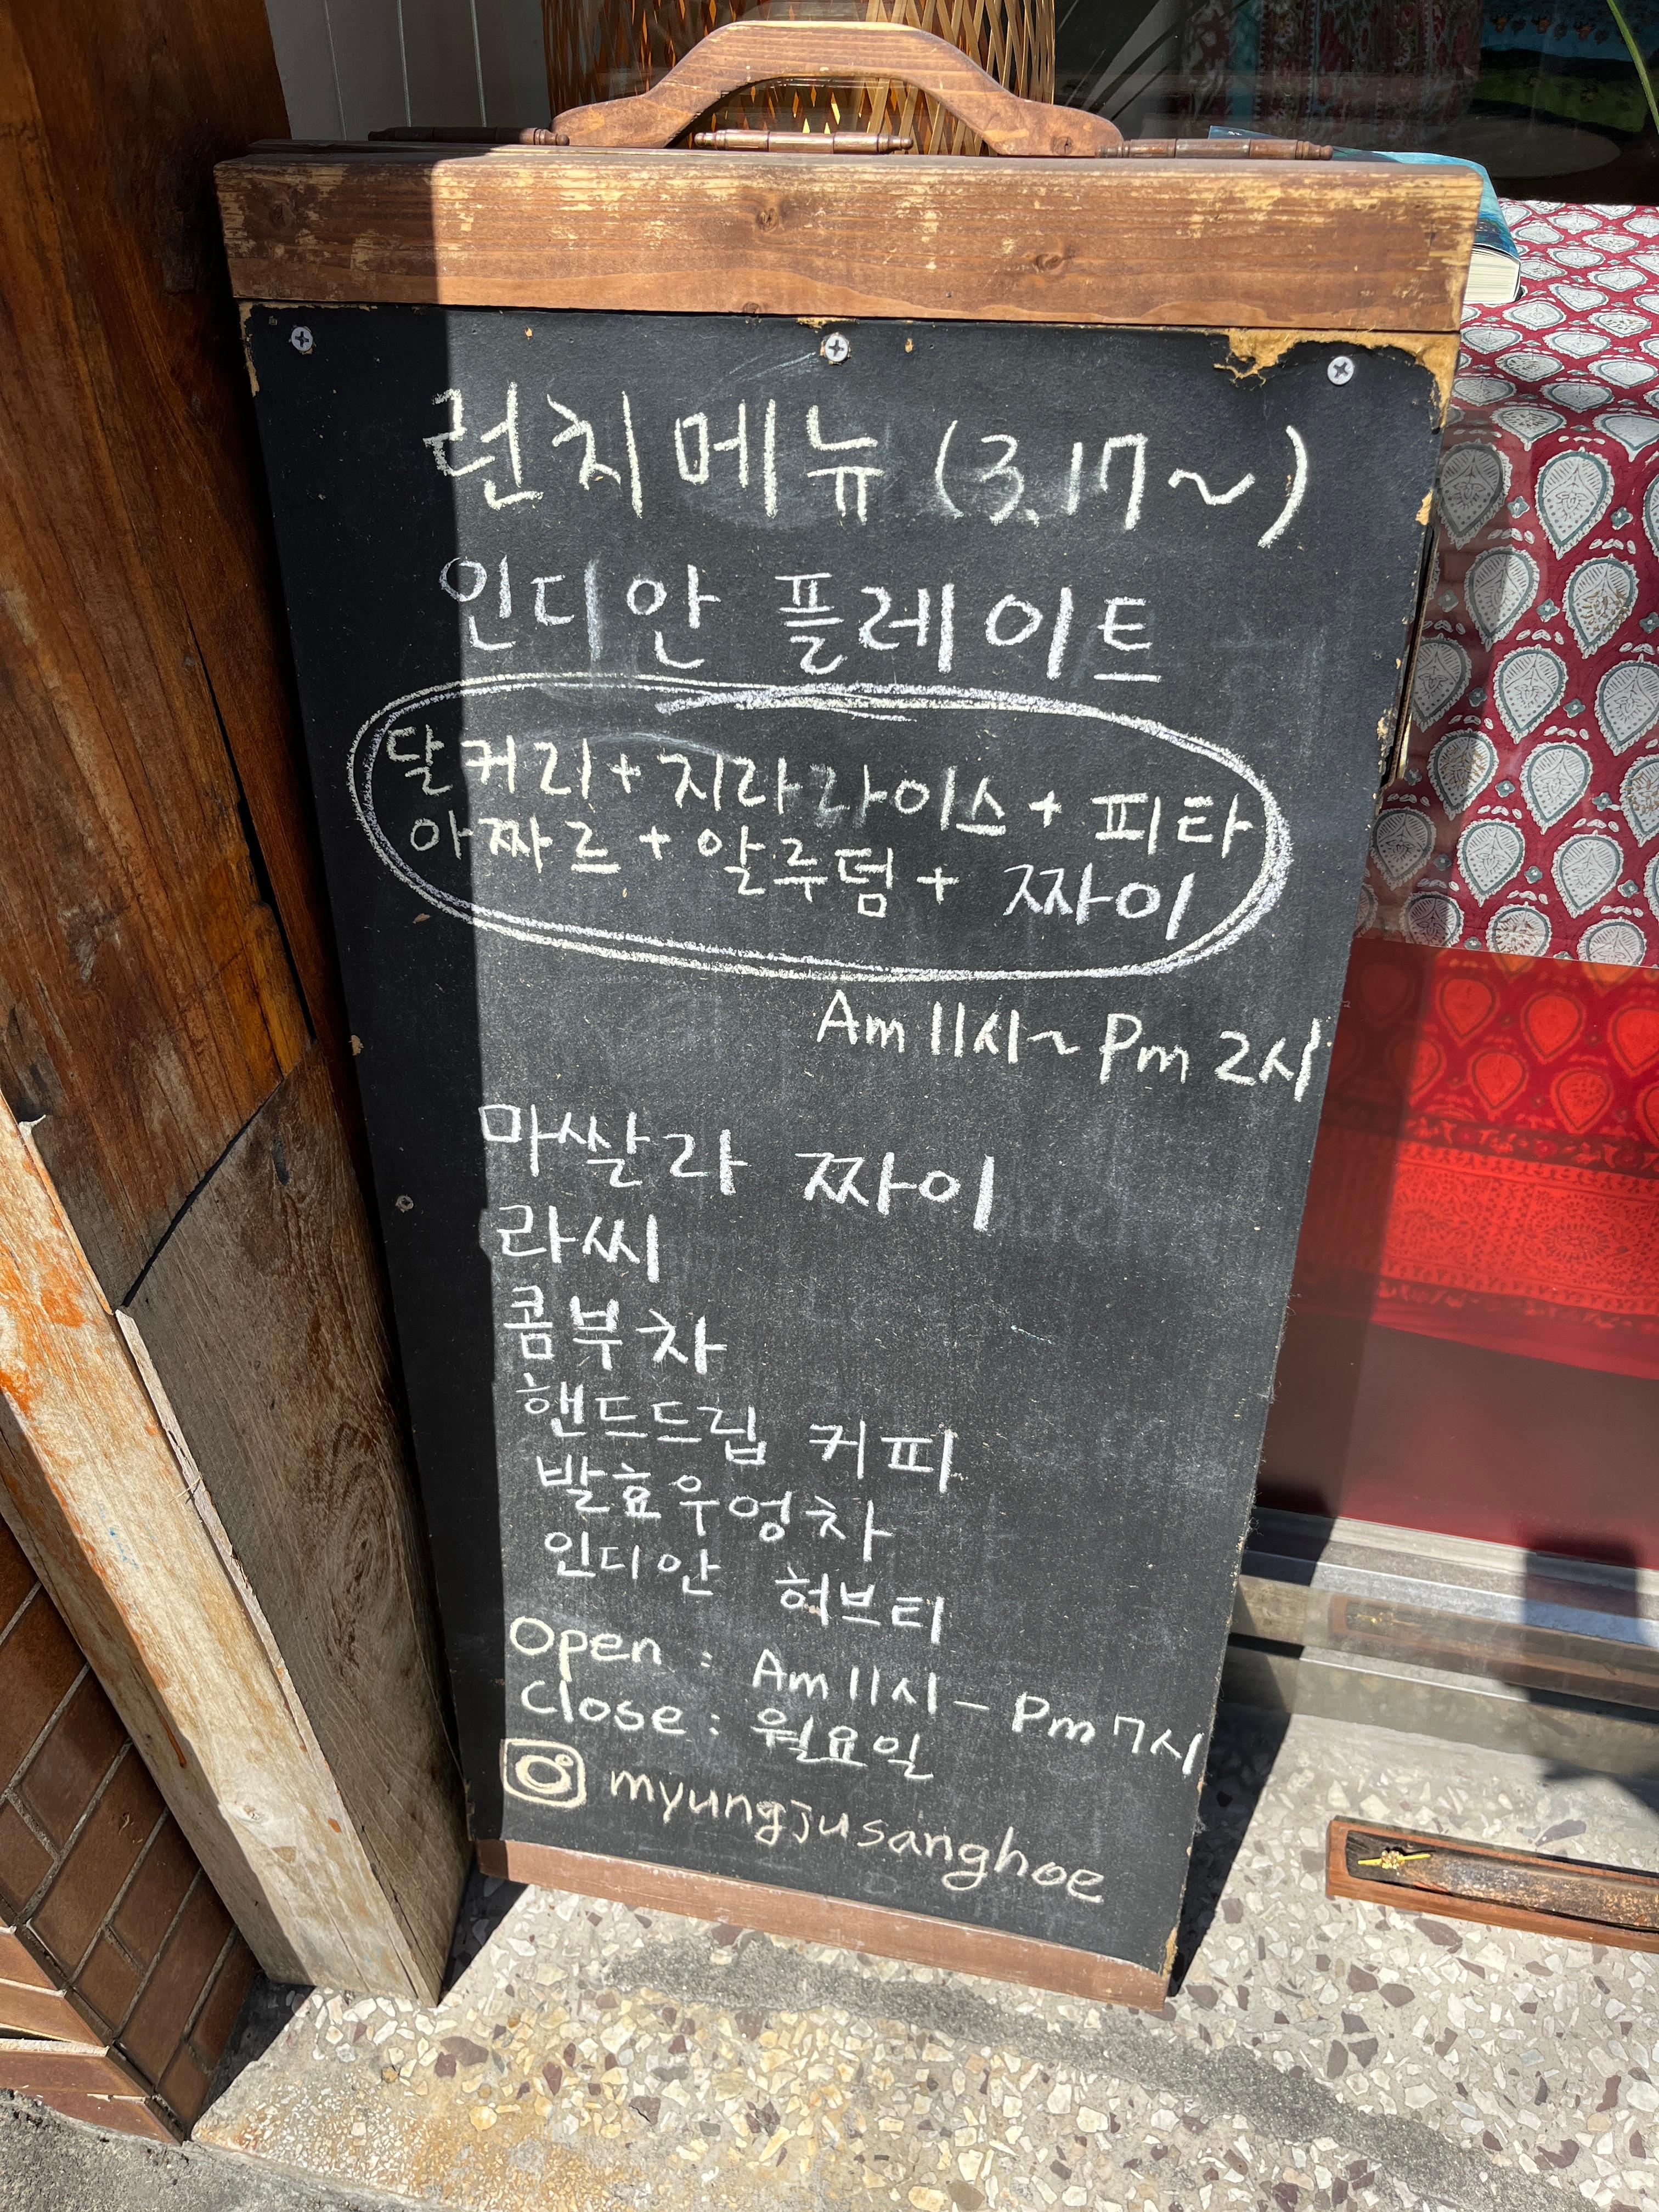 런치메뉴 (3.17~)
인디안 플레이트
달커리+지라라이스+피타
아짜르+알루덤+짜이
Am 11시~Pm 2시
마쌀라 짜이
라씨
콤부차
핸드드립 커피
발효우엉차
인디안 허브티
Open : Am 11시 - Pm 7시
Close : 월요일
myungjusanghoe